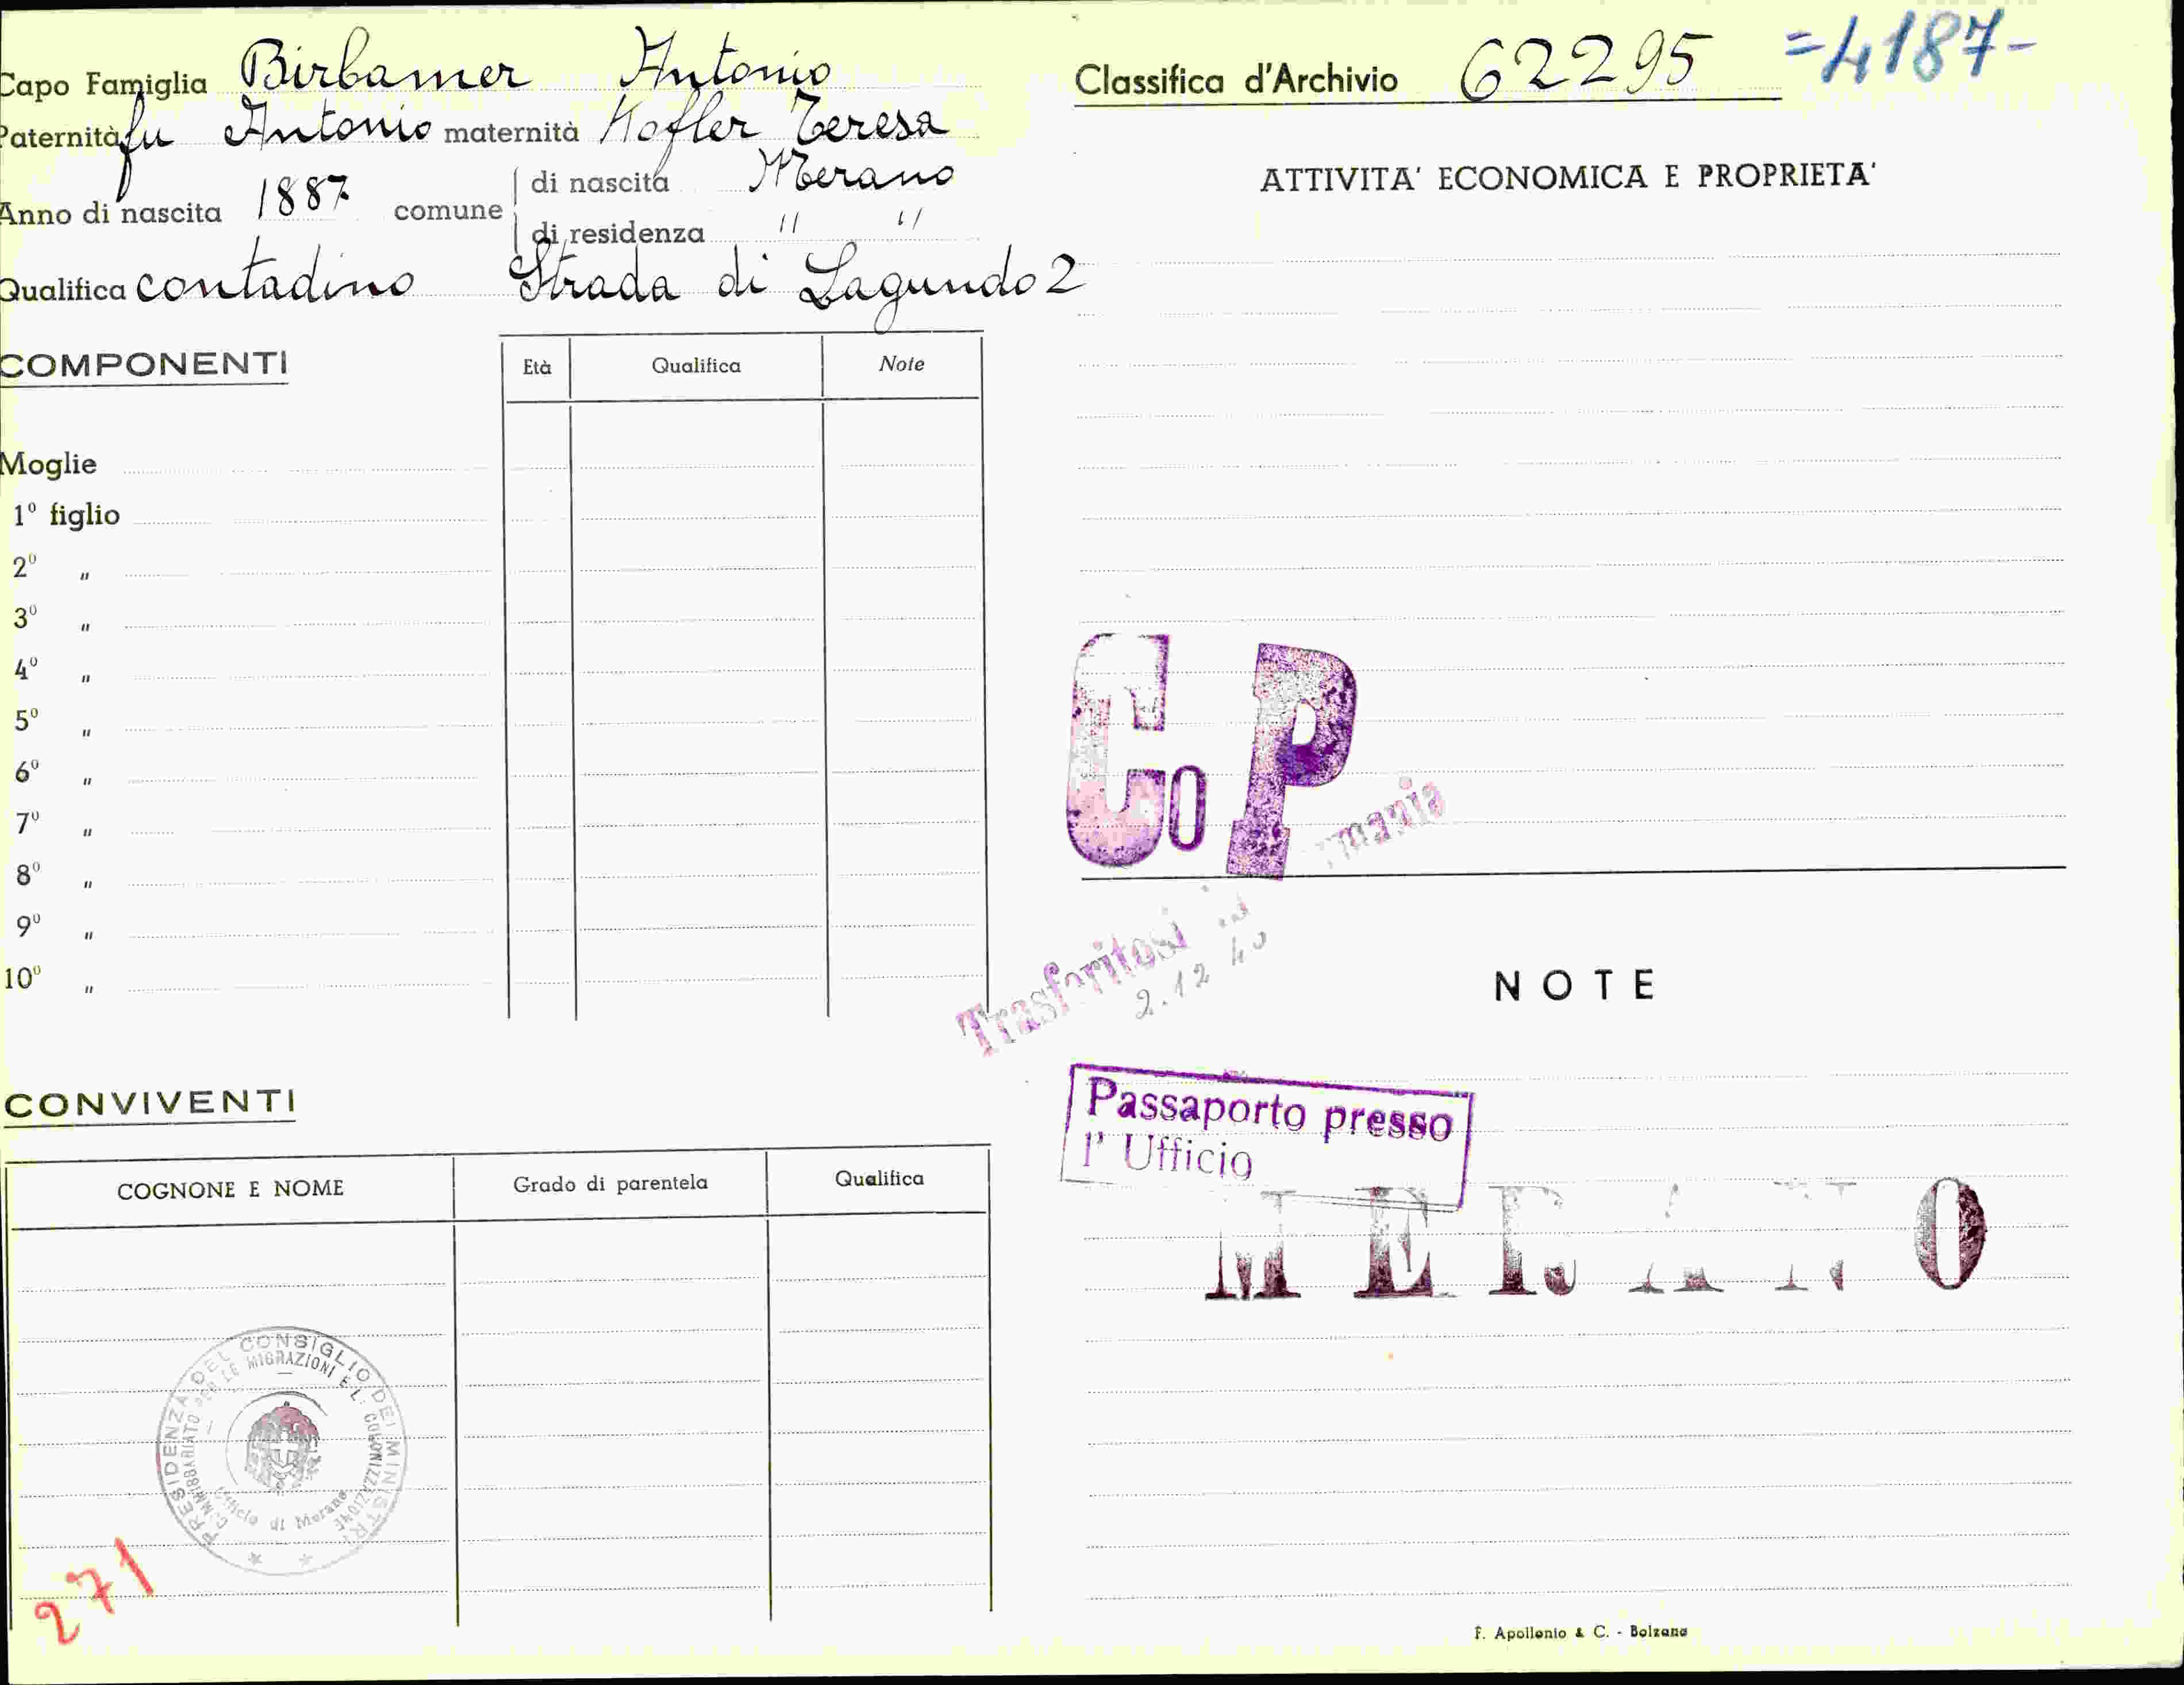 Capo Famiglia Birbamer Antonio
Paternità fu Antonio maternità Kofler Teresa
Anno di nascita 1887 comune di nascita Merano
di residenza " "
Qualifica contadino Strada di Lagundo 2
COMPONENTI
Età Qualifica Note
Moglie
1º figlio
2º "
3º "
4º "
5º "
6º "
7º "
8º "
9º "
10º "
CONVIVENTI
COGNONE E NOME Grado di parentela Qualifica
PRESIDENZA DEL CONSIGLIO DEI MINISTRI
COMMISSARIATO PER LE MIGRAZIONI E L' COLONIZZAZIONE
Ufficio di Merano
271
Classifica d'Archivio 62295 =4187-
ATTIVITA' ECONOMICA E PROPRIETA'
Co P
Trasferitosi in
2.12 40
NOTE
Passaporto presso
l' Ufficio
MERANO
F. Apollonio & C. - Bolzano